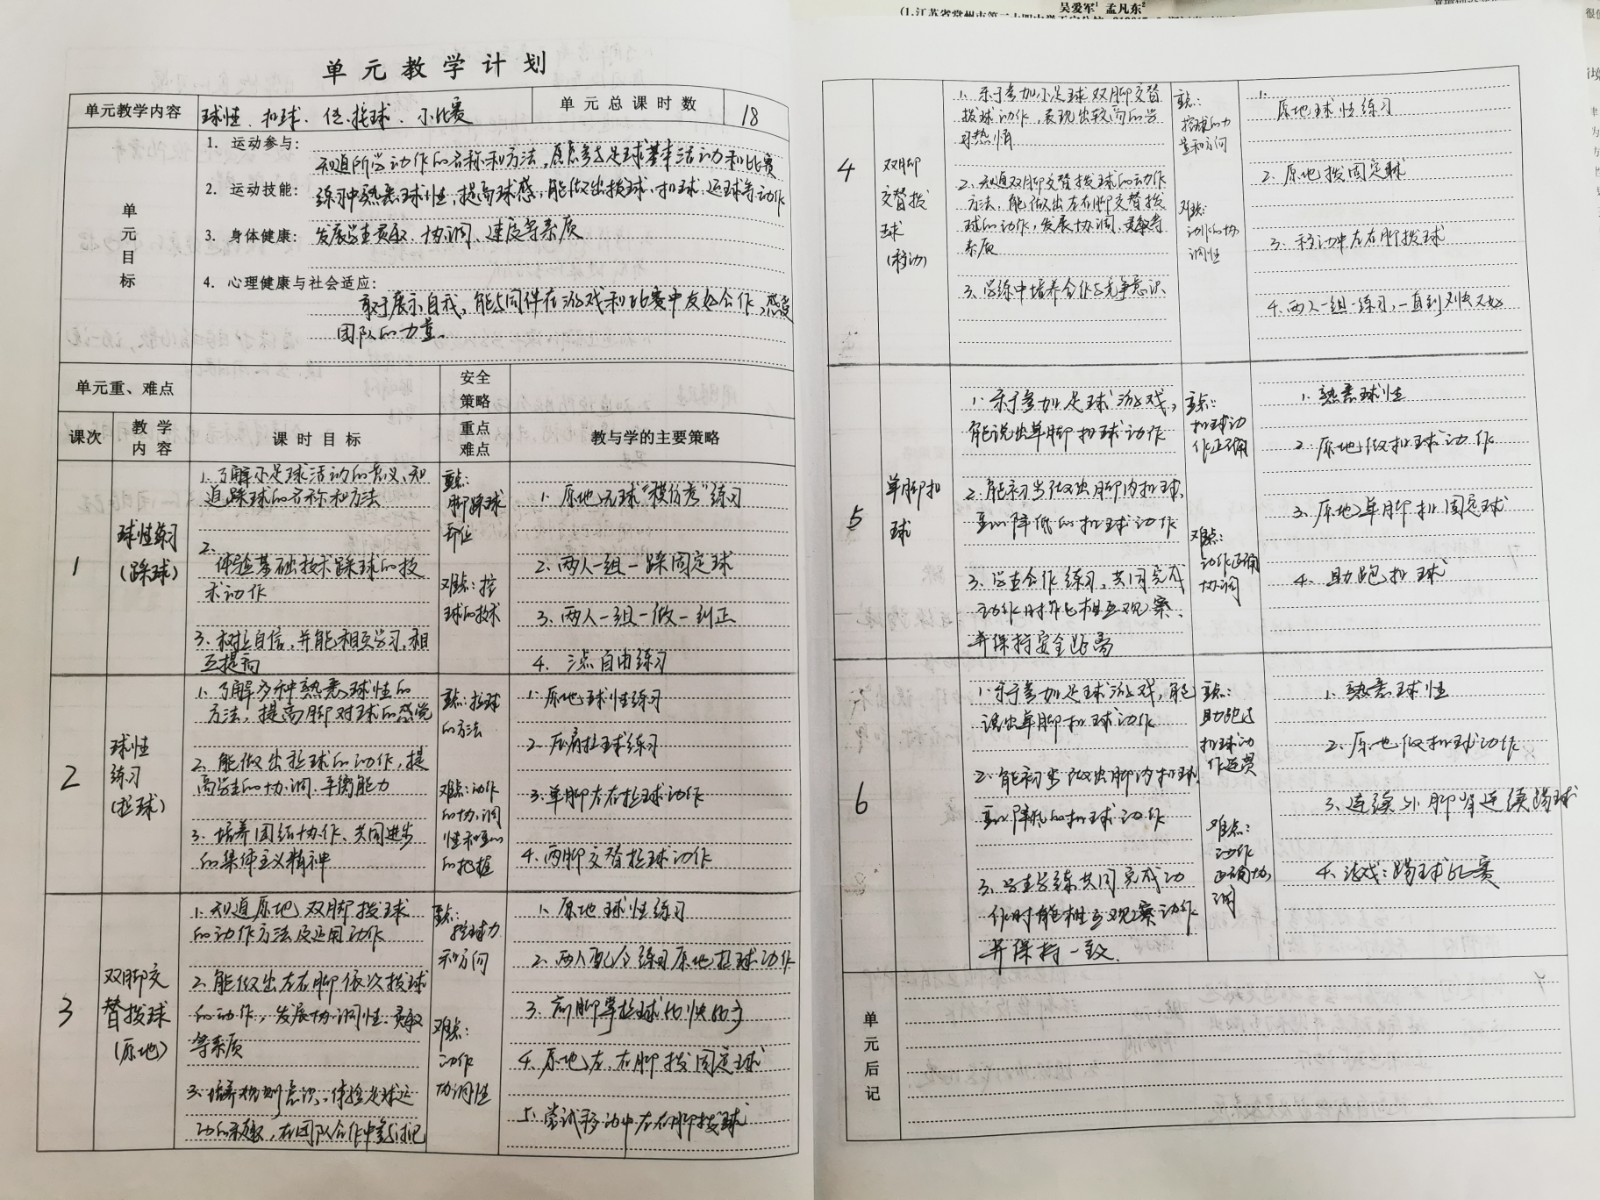 吴爱军¹ 孟凡东²
单元教学计划
单元教学内容
球性、扣球、传接球、小比赛
单元总课时数
18
单元目标
1. 运动参与:
知道所学动作的名称和方法,愿意参与足球基本活动和比赛
2. 运动技能:
练习中熟悉球性,提高球感,能做出拨球、扣球、运球等动作
3. 身体健康:
发展学生灵敏、协调、速度等素质
4. 心理健康与社会适应:
敢于展示自我,能与同伴在游戏和比赛中友好合作,感受
团队的力量。
单元重、难点
安全
策略
课次
教学
内容
课时目标
重点
难点
教与学的主要策略
1
球性练习
(踩球)
1. 了解小足球活动的意义,知
道踩球的名称和方法
2.
体验基础技术踩球的技
术动作
3. 树立自信,并能相互学习,相
互提高
重点:
脚踩球
部位
难点:控
球的技术
1. 原地无球“模仿秀”练习
2. 两人一组一踩固定球
3. 两人一组一做一纠正
4. 自由练习
2
球性
练习
(拉球)
1. 了解多种熟悉球性的
方法,提高脚对球的感觉
2. 能做出拉球的动作,提
高学生的协调、平衡能力
3. 培养团结协作、共同进步
的集体主义精神
重点:拉球
的方法
难点:动作
的协调
性和重心
的把握
1. 原地球性练习
2. 拉球练习
3. 单脚左右拉球动作
4. 两脚交替拉球动作
3
双脚交
替拨球
(原地)
1. 知道原地双脚拨球
的动作方法及运用动作
2. 能做出左右脚依次拨球
的动作,发展协调性、灵敏
等素质
3. 培养规则意识,体验足球运
动的乐趣,在团队合作中
重点:
控球力
和方向
难点:
动作
协调性
1. 原地球性练习
2. 两人配合练习原地拉球动作
3. 前脚掌拉球
4. 原地左、右脚拨固定球
5. 尝试移动中左右脚拨球
4
双脚
交替拨
球
(移动)
1. 乐于参加小足球双脚交替
拨球动作,表现出较高的学
习热情
2. 知道双脚交替拨球的动作
方法,能做出左右脚交替拨
球的动作,发展协调、灵敏等
素质
3. 学练中培养合作与竞争意识
重点:
控球的力
量和方向
难点:
动作的协
调性
1.
原地球性练习
2. 原地拨固定球
3. 移动中左右脚拨球
4. 两人一组一练习,一直到又快又好
5
单脚扣
球
1. 乐于参加足球游戏,
能说出单脚扣球动作
2. 能初步做出脚内扣球、
重心降低的扣球动作
3. 学生合作练习,共同完成
动作时能相互观察
并保持安全距离
重点:
扣球动
作正确
难点:
动作正确
协调
1. 熟悉球性
2. 原地做扣球动作
3. 原地单脚扣固定球
4. 助跑扣球
6
1. 乐于参加足球游戏,能
说出单脚扣球动作
2. 能初步做出脚内扣球
重心降低的扣球动作
3. 学生学练共同完成动
作时能相互观察动作
并保持一致
重点:
助跑与
扣球动
作连贯
难点:
动作
正确协
调
1. 熟悉球性
2. 原地做扣球动作
3. 连续外脚背连续踢球
4. 游戏:踢球比赛
单元后记